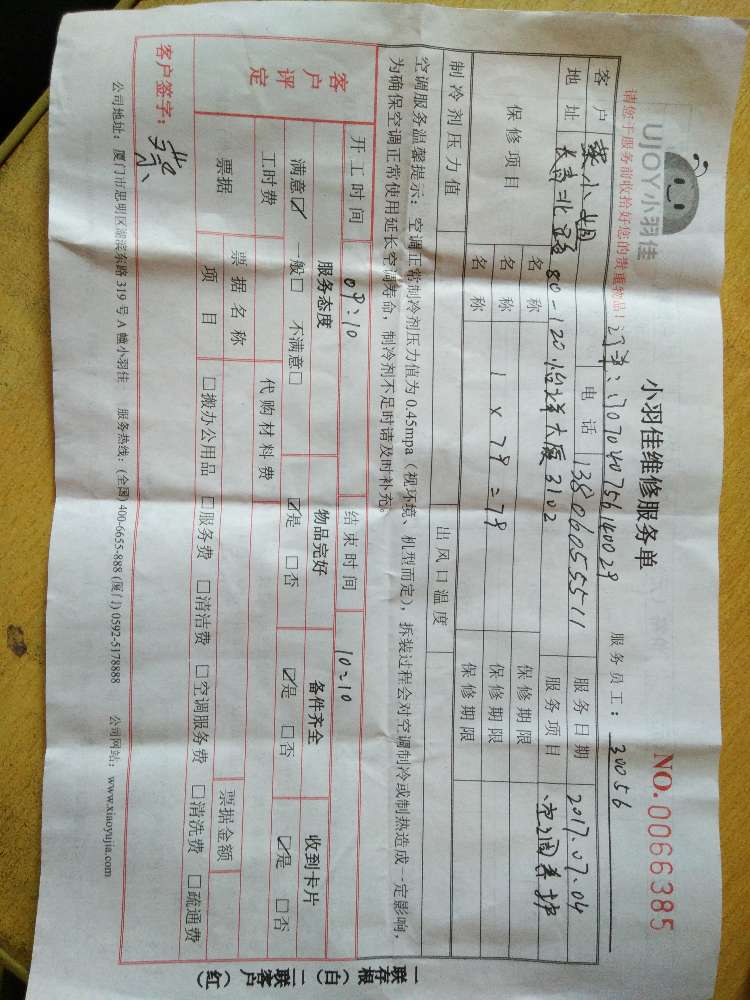 UJOY小羽佳
小羽佳维修服务单
NO.0066385
请您于服务前收拾好您的贵重物品!
订单:1707040756140029
服务员工: 30056
客户 蔡小姐 电话 13806055511 服务日期 2017.07.04
地址 长青北路80-120怡祥大厦3102 服务项目 空调养护
保修项目 名称 保修期限
名称 1×79=79 保修期限
名称 保修期限
制冷剂压力值 出风口温度
空调服务温馨提示:空调正常制冷剂压力值为0.45mpa(视环境、机型而定),拆装过程会对空调制冷或制热造成一定影响,
为确保空调正常使用延长空调寿命,制冷剂不足时请及时补充。
开工时间 09:10 结束时间 10:10
客户评定
服务态度 物品完好 备件齐全 收到卡片
满意☑ 一般□ 不满意□ ☑是 □否 ☑是 □否 ☑是 □否
工时费 代购材料费
票据 票据名称 票据金额
项目 □搬办公用品 □服务费 □清洁费 □空调服务费 □清洗费 □疏通费
客户签字: 蔡
公司地址:厦门市思明区湖滨东路319号A幢小羽佳 服务热线:(全国)400-6655-888 (厦门) 0592-5178888 公司网站:www.xiaoyujia.com
一联存根(白)二联客户(红)